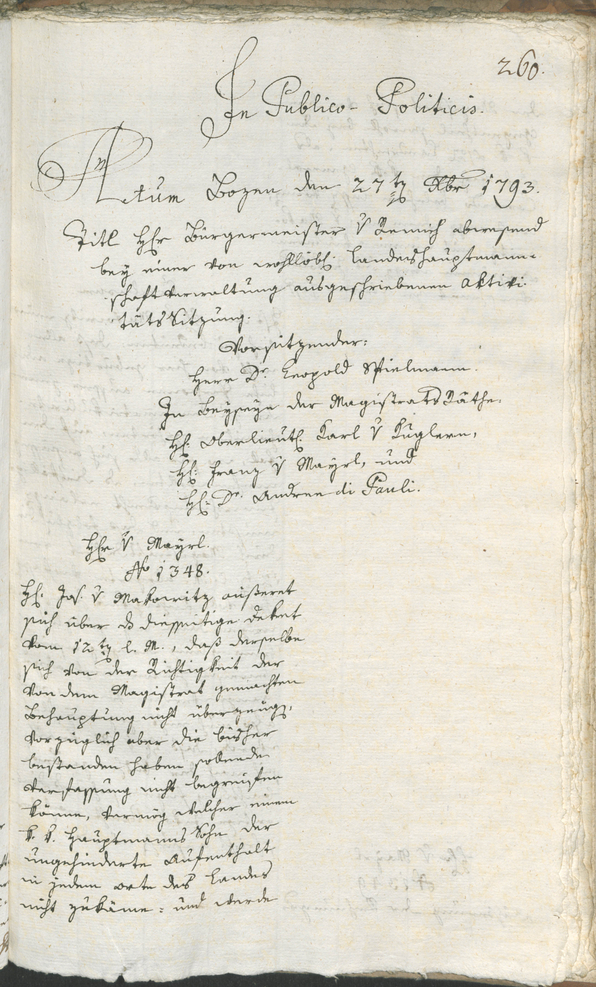 260.
In Publico-Politicis.
Actum Bozen den 27ten Xbr 1793.
Titl Hhr Bürgermeister v Remich abwesend
bey einer von wohllöbl: Landeshauptmann-
schaft Verwaltung ausgeschriebenen Aktivi-
täts Sitzung.
Vorsitzender:
Herr Dr. Leopold Spielmann.
In Beyseyn der Magistrats Räthe:
Hh: Oberlieut: Karl v Kuglern,
Hh: Franz v Mayrl, und
Hh: Dr. Andree di Pauli.
Hhr v Mayrl.
No 1348.
Hh: Jos. v Makowitz äußeret
sich über das diesseitige Deket
vom 12ten l. M., daß derselbe
sich von der Richtigkeit der
von dem Magistrat gemachten
Behauptung nicht überzeuge,
vorzüglich aber die bisher
bestanden haben sollende
Verfassung nicht begreifen
könne, vermög welcher einem
k. k. Hauptmanns Sohn der
ungehinderte Aufenthalt
in jedem Orte des Landes
nicht zukäme: und werde